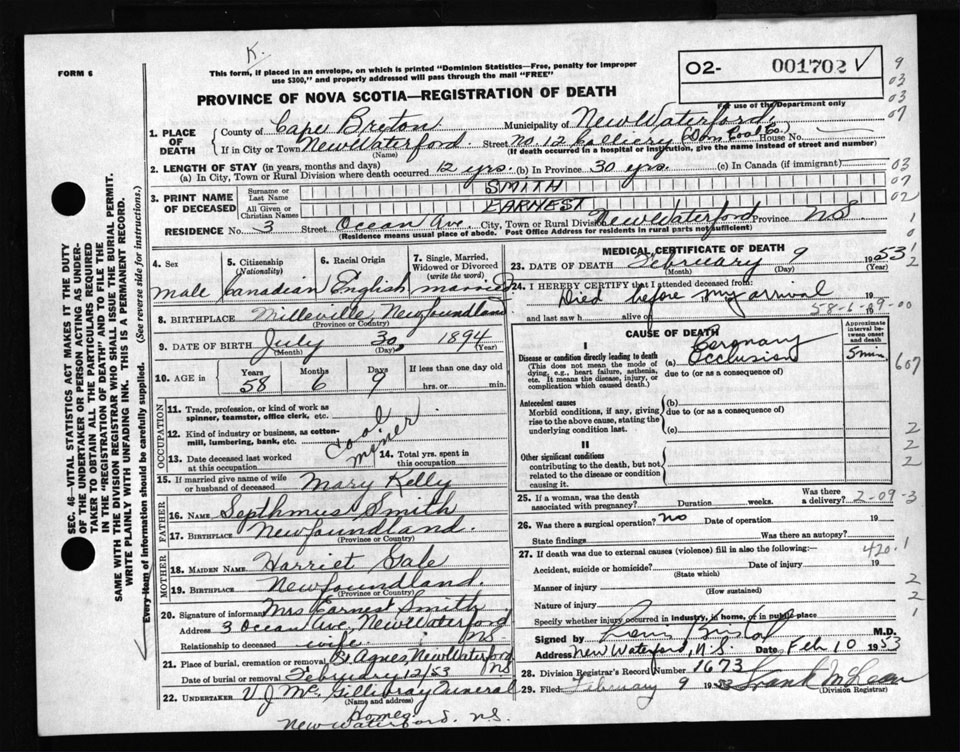 K.
FORM 6
This form, if placed in an envelope, on which is printed "Dominion Statistics—Free, penalty for improper
use $300," and properly addressed will pass through the mail "FREE"
O2- 001702 V
PROVINCE OF NOVA SCOTIA—REGISTRATION OF DEATH
For use of the Department only
9
03
03
07
1. PLACE OF DEATH
County of Cape Breton Municipality of New Waterford,
If in City or Town New Waterford. Street No. 12 Colliery (Dom Coal Co.) House No.
(Name) (If death occurred in a hospital or institution, give the name instead of street and number)
2. LENGTH OF STAY (in years, months and days)
(a) In City, Town or Rural Division where death occurred 12 yrs. (b) In Province 30 yrs. (c) In Canada (if immigrant)
03
07
02
3. PRINT NAME OF DECEASED
Surname or Last Name SMITH
All Given or Christian Names EARNEST
RESIDENCE No. 3 Street Ocean Ave. City, Town or Rural Division New Waterford Province N.S.
(Residence means usual place of abode. Post Office Address for residents in rural parts not sufficient)
1
0
2
4. Sex
5. Citizenship (Nationality)
6. Racial Origin
7. Single, Married, Widowed or Divorced (write the word)
male Canadian English married
8. BIRTHPLACE Milleville, Newfoundland
(Province or Country)
9. DATE OF BIRTH July 30, 1894
(Month) (Day) (Year)
10. AGE in Years Months Days If less than one day old
58 6 9 hrs. or min.
OCCUPATION
11. Trade, profession, or kind of work as spinner, teamster, office clerk, etc.
12. Kind of industry or business, as cotton-mill, lumbering, bank, etc.
Coal miner
13. Date deceased last worked at this occupation
14. Total yrs. spent in this occupation
15. If married give name of wife or husband of deceased Mary Kelly
FATHER
16. NAME Septhmus Smith
17. BIRTHPLACE Newfoundland.
(Province or Country)
MOTHER
18. MAIDEN NAME Harriet Gale
19. BIRTHPLACE Newfoundland.
(Province or Country)
20. Signature of informant Mrs Earnest Smith
Address 3 Ocean Ave, New Waterford NS.
Relationship to deceased wife
21. Place of burial, cremation or removal St Agnes, New Waterford NS
Date of burial or removal February 12/53
22. UNDERTAKER V J McGillibray Funeral Home.
(Name and address)
New Waterford, N.S.
MEDICAL CERTIFICATE OF DEATH
23. DATE OF DEATH February 9 1953
(Month) (Day) (Year)
24. I HEREBY CERTIFY that I attended deceased from:
Died before my arrival
and last saw h alive on 19
58-6-09-00
CAUSE OF DEATH
Approximate interval between onset and death
I
Disease or condition directly leading to death
(This does not mean the mode of dying, e.g., heart failure, asthenia, etc. It means the disease, injury, or complication which caused death.)
(a) Coronary Occlusion 5 min.
due to (or as a consequence of)
607
Antecedent causes
Morbid conditions, if any, giving rise to the above cause, stating the underlying condition last.
(b)
due to (or as a consequence of)
(c)
II
Other significant conditions
contributing to the death, but not related to the disease or condition causing it.
2
2
2
25. If a woman, was the death associated with pregnancy? Duration weeks. Was there a delivery?
2-09-3
26. Was there a surgical operation? no Date of operation 19
State findings Was there an autopsy?
27. If death was due to external causes (violence) fill in also the following:—
420.1
Accident, suicide or homicide? Date of injury 19
(State which)
Manner of injury
(How sustained)
Nature of injury
Specify whether injury occurred in industry, in home, or in public place
2
2
1
Signed by M.D.
Address New Waterford, N.S. Date Feb 10 1953
28. Division Registrar's Record Number 1673
29. Filed February 9 1953 Frank McLean
(Division Registrar)
SEC. 46—VITAL STATISTICS ACT MAKES IT THE DUTY
OF THE UNDERTAKER OR PERSON ACTING AS UNDER-
TAKER TO OBTAIN ALL THE PARTICULARS REQUIRED
IN THE "REGISTRATION OF DEATH" AND TO FILE THE
SAME WITH THE DIVISION REGISTRAR WHO SHALL ISSUE THE BURIAL PERMIT.
WRITE PLAINLY WITH UNFADING INK. THIS IS A PERMANENT RECORD.
Every item of information should be carefully supplied. (See reverse side for instructions.)